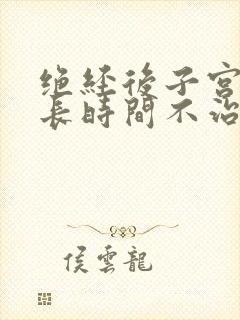 绝经後子宫
長時間不治
侯雲龍